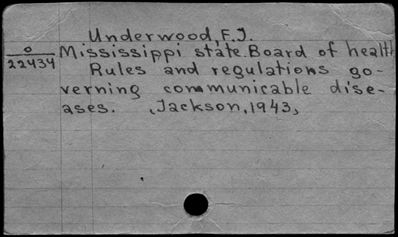 Underwood, F.J.
o
22434
Mississippi state. Board of health
Rules and regulations go-
verning communicable dise-
ases. (Jackson, 1943)